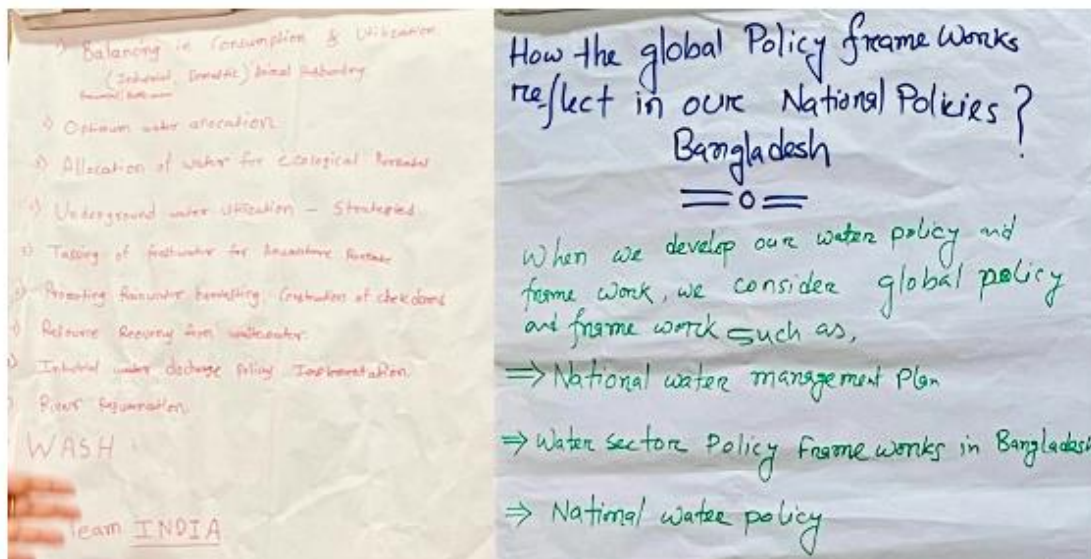 1) Balancing in Consumption & Utilization
(Industrial, Domestic) Animal Husbandry
2) Optimum water allocation
3) Allocation of water for ecological
4) Underground water utilization - Strategies
5) of freshwater for
Promoting Rainwater harvesting, Construction of
Resource Recovery from wastewater
Industrial water discharge policy Implementation
River
WASH
Team INDIA
How the global Policy frame works
reflect in our National Policies?
Bangladesh
When we develop our water policy and
frame work, we consider global policy
and frame work such as,
⇒ National water management Plan
⇒ Water sector Policy Frame works in Bangladesh
⇒ National water policy